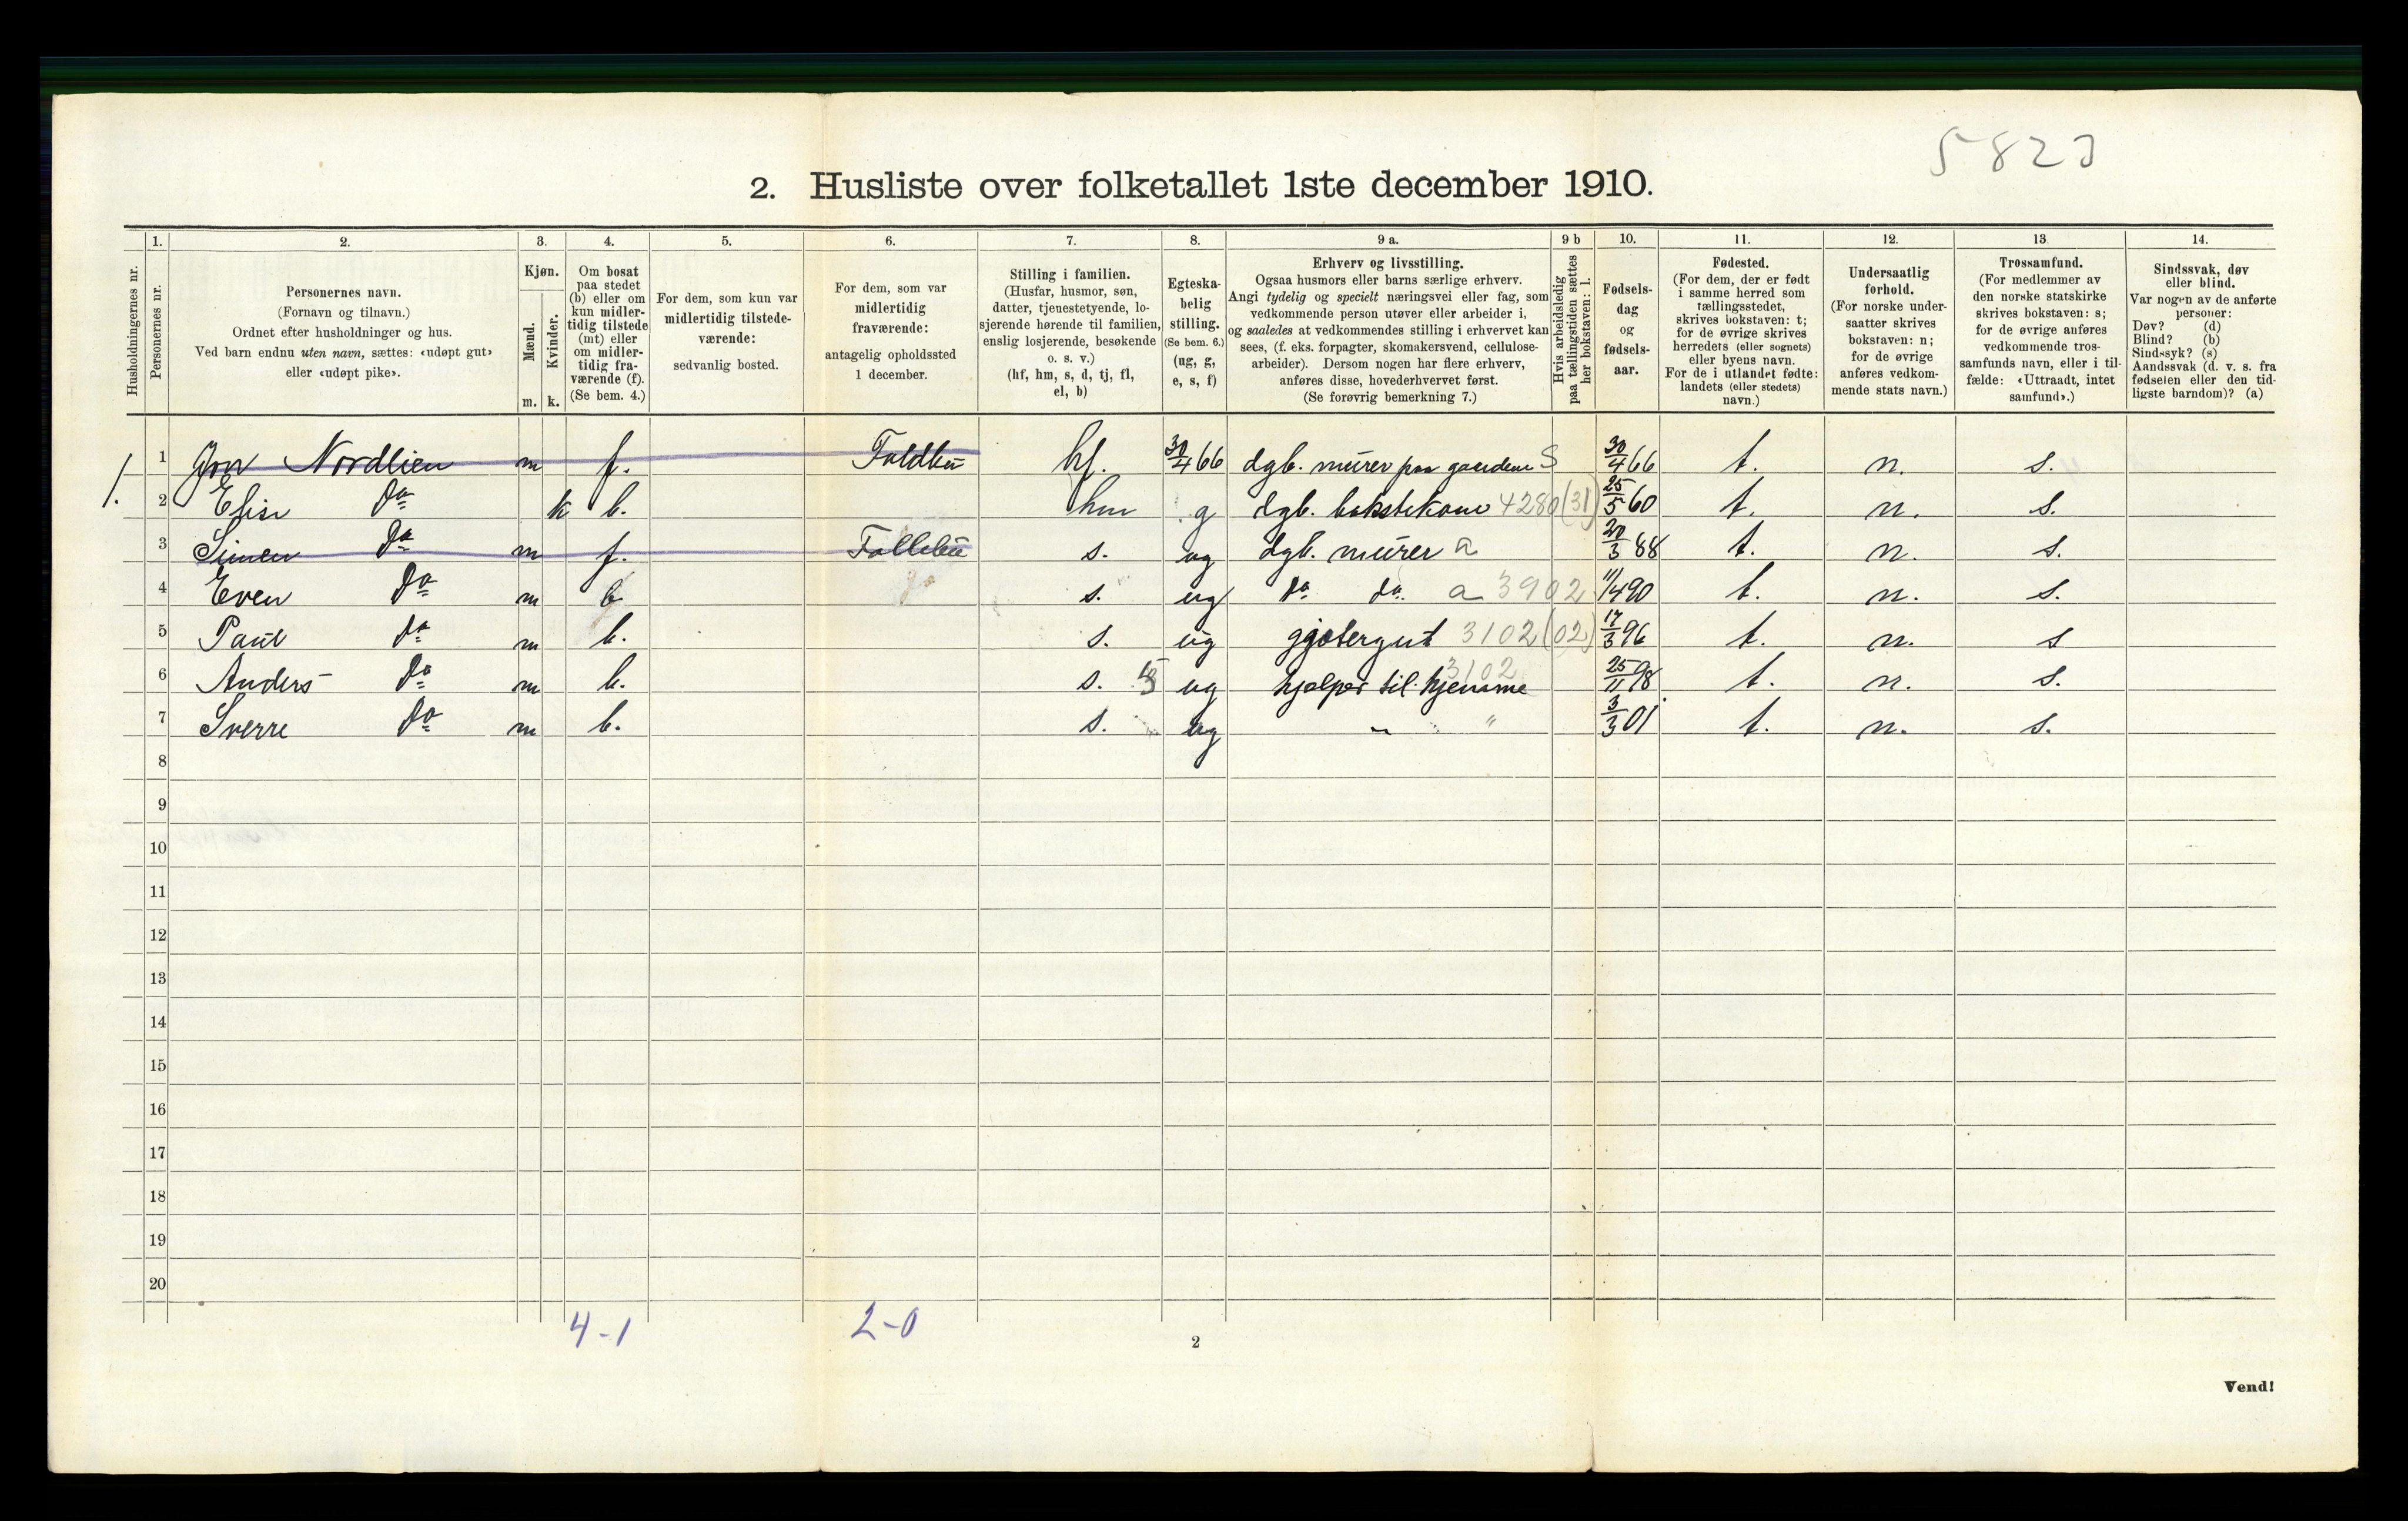 5823
2. Husliste over folketallet 1ste december 1910.
Husholdningernes nr.
1.
Personernes nr.
2.
Personernes navn.
(Fornavn og tilnavn.)
Ordnet efter husholdninger og hus.
Ved barn endnu uten navn, sættes: «udøpt gut»
eller «udøpt pike».
3.
Kjøn.
Mænd.
Kvinder.
m. k.
4.
Om bosat
paa stedet
(b) eller om
kun midler-
tidig tilstede
(mt) eller
om midler-
tidig fra-
værende (f).
(Se bem. 4.)
5.
For dem, som kun var
midlertidig tilstede-
værende:
sedvanlig bosted.
6.
For dem, som var
midlertidig
fraværende:
antagelig opholdssted
1 december.
7.
Stilling i familien.
(Husfar, husmor, søn,
datter, tjenestetyende, lo-
sjerende hørende til familien,
enslig losjerende, besøkende
o. s. v.)
(hf, hm, s, d, tj, fl,
el, b)
8.
Egteska-
belig
stilling.
(Se bem. 6.)
(ug, g,
e, s, f)
9 a.
Erhverv og livsstilling.
Ogsaa husmors eller barns særlige erhverv.
Angi tydelig og specielt næringsvei eller fag, som
vedkommende person utøver eller arbeider i,
og saaledes at vedkommendes stilling i erhvervet kan
sees, (f. eks. forpagter, skomakersvend, cellulose-
arbeider). Dersom nogen har flere erhverv,
anføres disse, hovederhvervet først.
(Se forøvrig bemerkning 7.)
9 b
Hvis arbeidsledig
paa tællingstiden sættes
her bokstaven: l.
10.
Fødsels-
dag
og
fødsels-
aar.
11.
Fødested.
(For dem, der er født
i samme herred som
tællingsstedet,
skrives bokstaven: t;
for de øvrige skrives
herredets (eller sognets)
eller byens navn.
For de i utlandet fødte:
landets (eller stedets)
navn.)
12.
Undersaatlig
forhold.
(For norske under-
saatter skrives
bokstaven: n;
for de øvrige
anføres vedkom-
mende stats navn.)
13.
Trossamfund.
(For medlemmer av
den norske statskirke
skrives bokstaven: s;
for de øvrige anføres
vedkommende tros-
samfunds navn, eller i til-
fælde: «Uttraadt, intet
samfund».)
14.
Sindssvak, døv
eller blind.
Var nogen av de anførte
personer:
Døv? (d)
Blind? (b)
Sindssyk? (s)
Aandssvak (d. v. s. fra
fødselen eller den tid-
ligste barndom)? (a)
1. 1 Jon Nordlien m f. Foldbu hf. 30/4 66 dgb. murer paa gaardene S 30/4 66 t. n. s.
2 Elise Do k b. hm g dgb. bakstekone 4280 (31) 25/5 60 t. n. s.
3 Simen Do m f. Follebu s. ug dgb. murer a 20/3 88 t. n. s.
4 Even Do m b s. ug do do. a 3902 11/4 90 t. n. s.
5 Paul Do m b. s. ug gjætergut 3102 (02) 17/3 96 t. n. s
6 Anders Do m b. s. 5 ug hjælper til hjemme 3102 25/11 98 t. n. s.
7 Sverre Do m b. s. ug " " 3/3 01 t. n. s.
8
9
10
11
12
13
14
15
16
17
18
19
20
4-1 2-0
2
Vend!